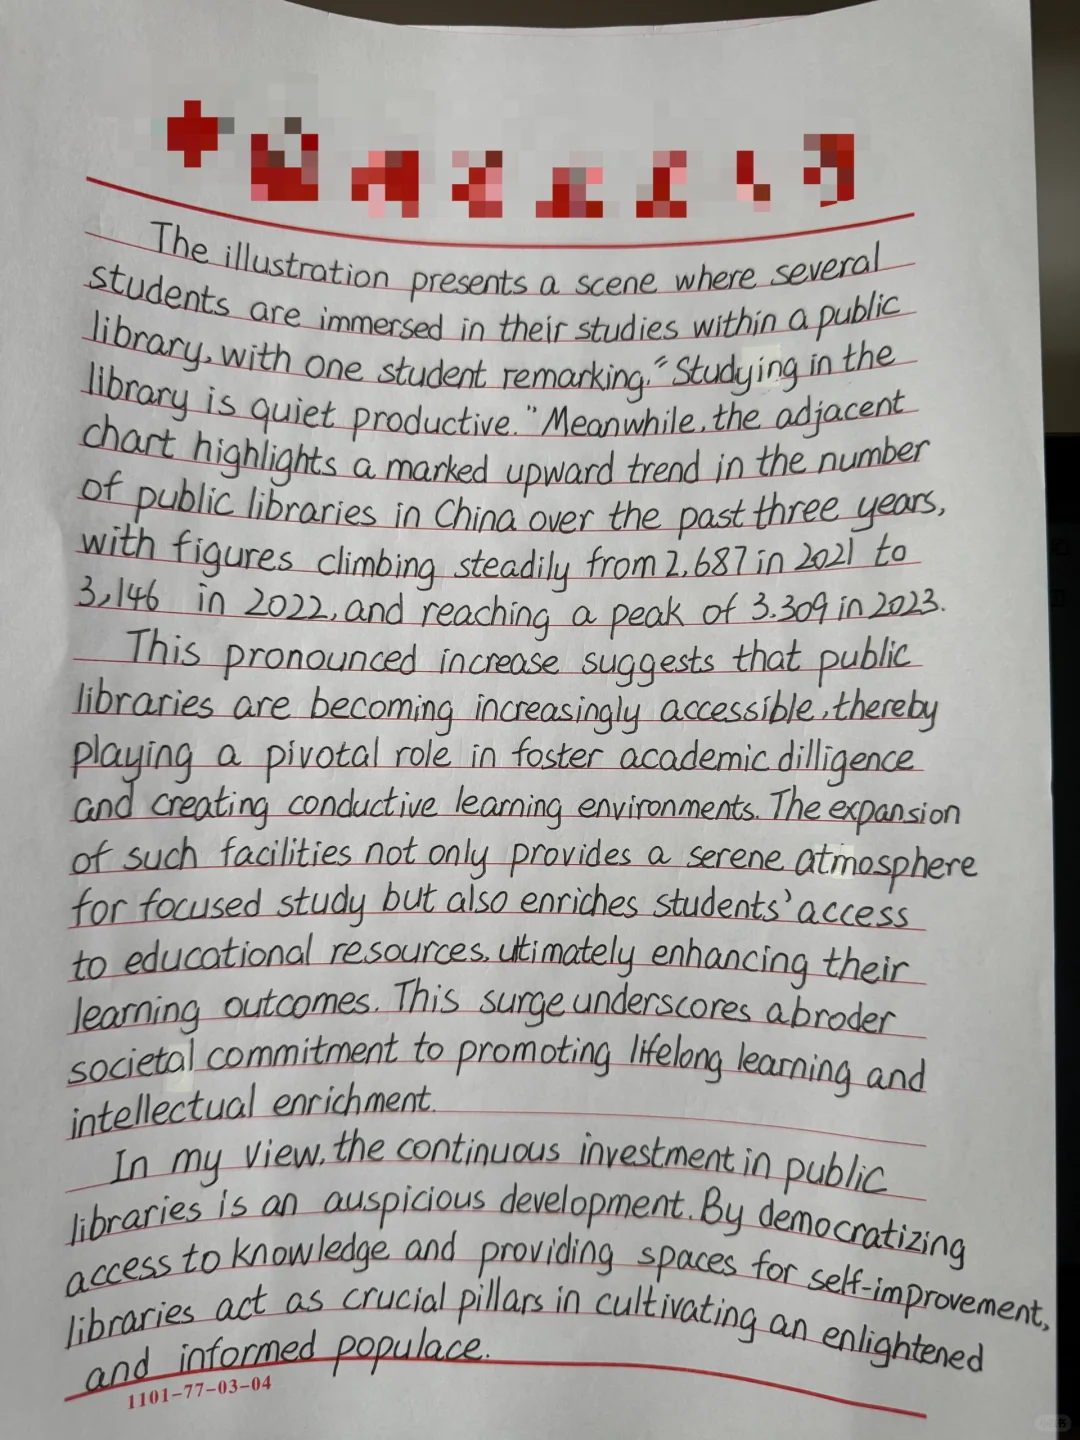 The illustration presents a scene where several
students are immersed in their studies within a public
library, with one student remarking, "Studying in the
library is quiet productive." Meanwhile, the adjacent
chart highlights a marked upward trend in the number
of public libraries in China over the past three years,
with figures climbing steadily from 2,687 in 2021 to
3,146 in 2022, and reaching a peak of 3.309 in 2023.
This pronounced increase suggests that public
libraries are becoming increasingly accessible, thereby
playing a pivotal role in foster academic dilligence
and creating conductive learning environments. The expansion
of such facilities not only provides a serene atmosphere
for focused study but also enriches students' access
to educational resources, utimately enhancing their
learning outcomes. This surge underscores a broder
societal commitment to promoting lifelong learning and
intellectual enrichment.
In my view, the continuous investment in public
libraries is an auspicious development. By democratizing
access to knowledge and providing spaces for self-improvement,
libraries act as crucial pillars in cultivating an enlightened
and informed populace.
1101-77-03-04